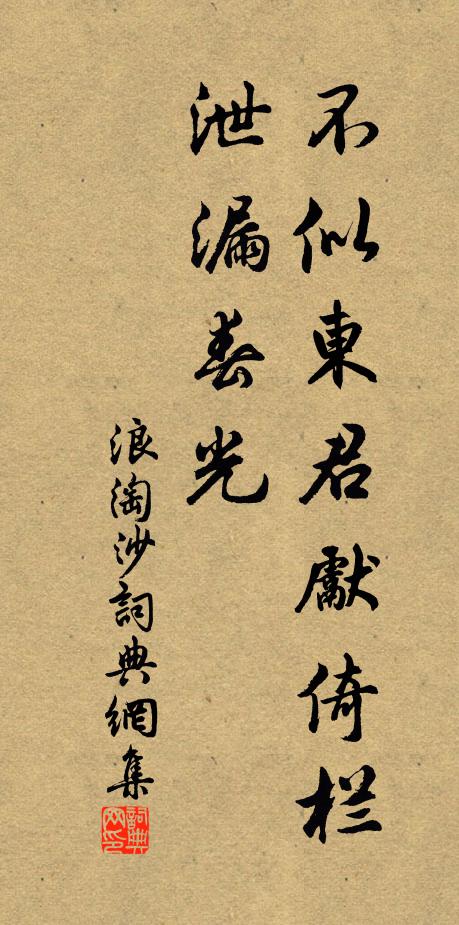 不似東君獻倚栏
泄漏春光
浪淘沙詞典網集
詞典网印